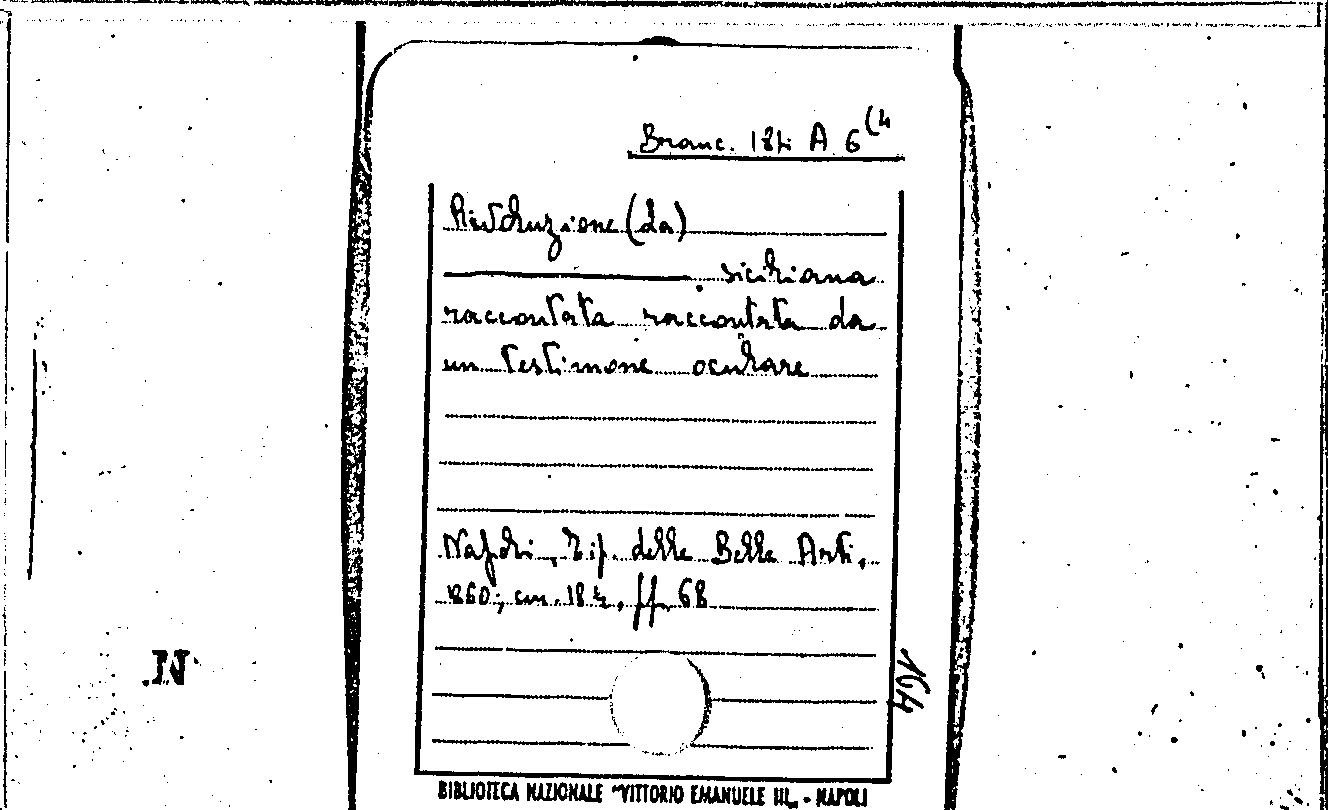 Branc. 184 A 6 (4
Rivoluzione (la)
siciliana
raccontata raccontata da
un testimone oculare
Napoli, Tip. delle Belle Arti,
1860; cm. 18 ½, pp. 68
164
N.
BIBLIOTECA NAZIONALE "VITTORIO EMANUELE III„ - NAPOLI